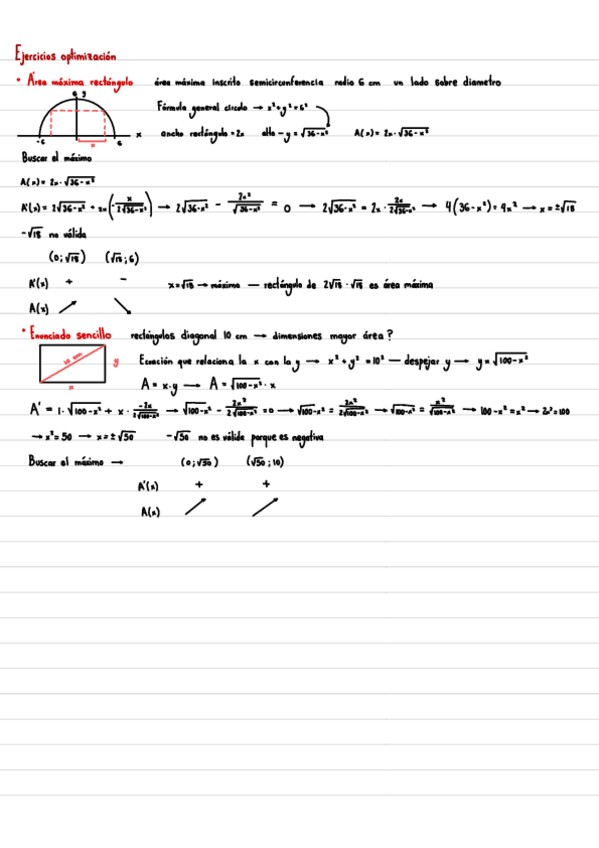 Ejercicios optimización
• Área máxima rectángulo área máxima inscrito semicirconferencia radio 6 cm un lado sobre diametro
6 y
Fórmula general círculo → x²+y²=6²
-6 x 6 x ancho rectángulo = 2x alto – y = √36-x² A(x) = 2x·√36-x²
Buscar el máximo
A(x) = 2x·√36-x²
→ 2√36-x² - 2x²/√36-x² = 0 → → 4(36-x²) = 4x² → x = ±√18
-√18 no válida
(0;√18) (√18;6)
A'(x) + - x=√18 → máximo — rectángulo de 2√18 · √18 es área máxima
A(x) ↗ ↘
• Enunciado sencillo rectángulos diagonal 10 cm → dimensiones mayor área?
10 cm y Ecuación que relaciona la x con la y → x²+y² = 10² — despejar y → y = √100-x²
x A = x·y → A = √100-x² · x
A' = 1·√100-x² + x · -2x/2√100-x² → √100-x² - 2x²/2√100-x² = 0 → √100-x² = 2x²/2√100-x² → √100-x² = x²/√100-x² → 100-x² = x² → 2x² = 100
→ x² = 50 → x = ±√50 -√50 no es válida porque es negativa
Buscar el máximo → (0;√50) (√50;10)
A'(x) + +
A(x) ↗ ↗